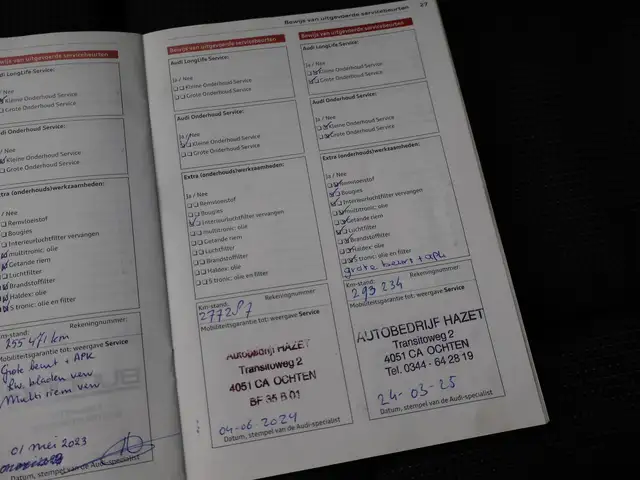 27
Bewijs van uitgevoerde servicebeurten
Bewijs van uitgevoerde servicebeurten
Audi LongLife Service:
Kleine Onderhoud Service
Grote Onderhoud Service
Audi Onderhoud Service:
Kleine Onderhoud Service
Grote Onderhoud Service
Extra (onderhouds)werkzaamheden:
/ Nee
Remvloeistof
Bougies
Interieurluchtfilter vervangen
multitronic: olie
Getande riem
Luchtfilter
Brandstoffilter
Haldex: olie
S tronic: olie en filter
Km-stand: Rekeningnummer:
255 471 km
Mobiliteitsgarantie tot: weergave Service
Grote beurt + APK
bladen verv
Multi riem verv
01 mei 2023
Datum, stempel van de Audi-specialist
Bewijs van uitgevoerde servicebeurten
Audi LongLife Service:
Ja / Nee
Kleine Onderhoud Service
Grote Onderhoud Service
Audi Onderhoud Service:
Ja / Nee
Kleine Onderhoud Service
Grote Onderhoud Service
Extra (onderhouds)werkzaamheden:
Ja / Nee
Remvloeistof
Bougies
Interieurluchtfilter vervangen
multitronic: olie
Getande riem
Luchtfilter
Brandstoffilter
Haldex: olie
S tronic: olie en filter
Km-stand: Rekeningnummer:
277287
Mobiliteitsgarantie tot: weergave Service
Autobedrijf HAZET
Transitoweg 2
4051 CA OCHTEN
BF 35 B 01
04-06-2024
Datum, stempel van de Audi-specialist
Bewijs van uitgevoerde servicebeurten
Audi LongLife Service:
Ja / Nee
Kleine Onderhoud Service
Grote Onderhoud Service
Audi Onderhoud Service:
Ja / Nee
Kleine Onderhoud Service
Grote Onderhoud Service
Extra (onderhouds)werkzaamheden:
Ja / Nee
Remvloeistof
Bougies
Interieurluchtfilter vervangen
multitronic: olie
Getande riem
Luchtfilter
Brandstoffilter
Haldex: olie
S tronic: olie en filter
grote beurt + apk
Km-stand: Rekeningnummer:
293 234
Mobiliteitsgarantie tot: weergave Service
AUTOBEDRIJF HAZET
Transitoweg 2
4051 CA OCHTEN
Tel. 0344 - 64 28 19
24-03-25
Datum, stempel van de Audi-specialist